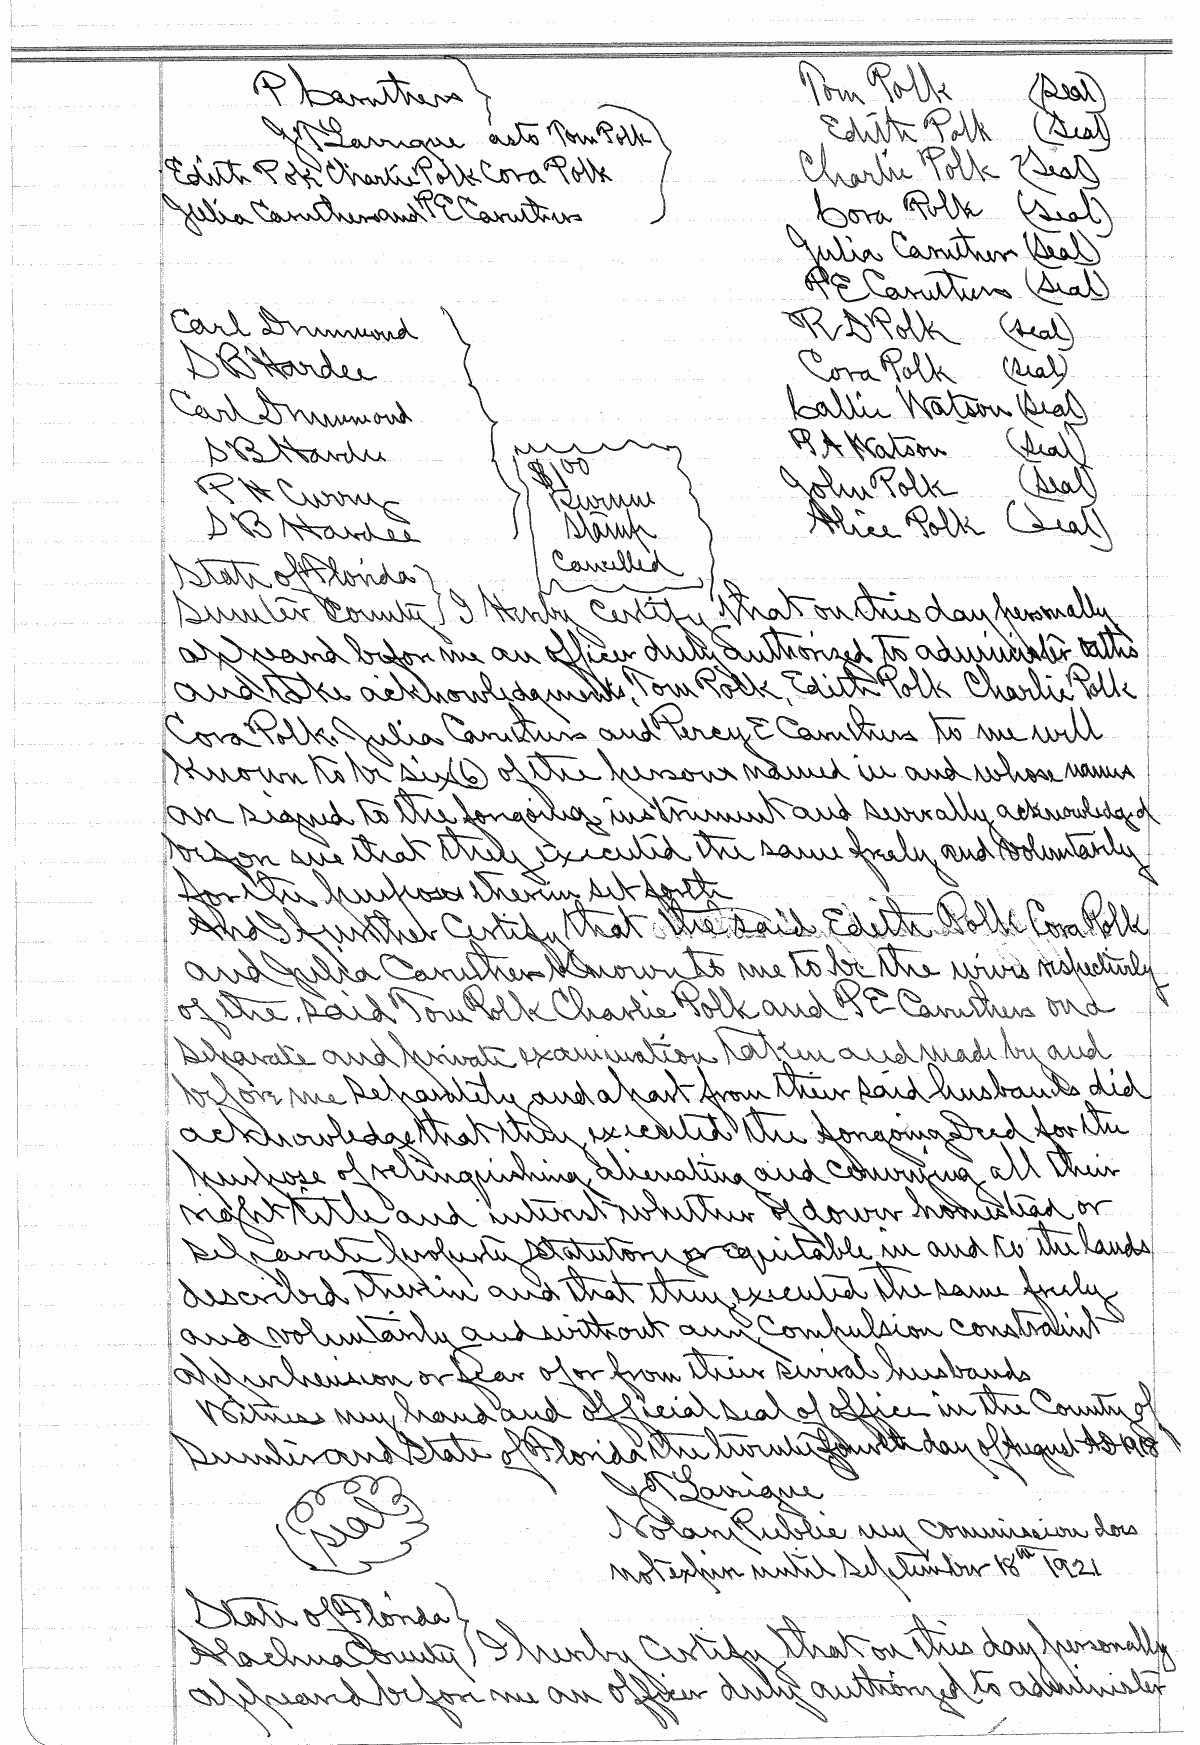 P Caruthers } Tom Polk (Seal)
J T Lavigne as to Tom Polk Edith Polk (Seal)
Edith Polk Charlie Polk Cora Polk Charlie Polk (Seal)
Julia Caruthers and P E Caruthers Cora Polk (Seal)
Julia Caruthers (Seal)
P E Caruthers (Seal)
Carl Drummond R D Polk (Seal)
D B Hardee Cora Polk (Seal)
Carl Drummond Callie Watson (Seal)
D B Hardee P A Watson (Seal)
P H Curry $1.00 Revenue John Polk (Seal)
D B Hardee Stamp Alice Polk (Seal)
State of Florida } Cancelled
Sumter County } I Hereby Certify that on this day personally
appeared before me an officer duly authorized to administer oaths
and take acknowledgements, Tom Polk, Edith Polk Charlie Polk
Cora Polk, Julia Caruthers and Percy E Caruthers to me well
known to be six (6) of the persons named in and whose names
are signed to the foregoing instrument and severally acknowledged
before me that they executed the same freely and voluntarily
for the purposes therein set forth
And I further Certify that the said Edith Polk Cora Polk
and Julia Caruthers Known to me to be the wives respectively
of the said Tom Polk Charlie Polk and P E Caruthers on a
separate and private examination taken and made by and
before me separately and apart from their said husbands did
acknowledge that they executed the foregoing Deed for the
purpose of relinquishing, alienating and conveying all their
right title and interest whether of dower homestead or
separate property statutory or equitable in and to the lands
described therein and that they executed the same freely
and voluntarily and without any compulsion constraint
apprehension or fear of or from their several husbands
Witness my hand and official seal of office in the County of
Sumter and State of Florida the twenty fourth day of August A D 1918
(Seal) J T Lavigne
Notary Public my commission does
not expire until September 18th 1921
State of Florida }
Alachua County } I hereby certify that on this day personally
appeared before me an officer duly authorized to administer